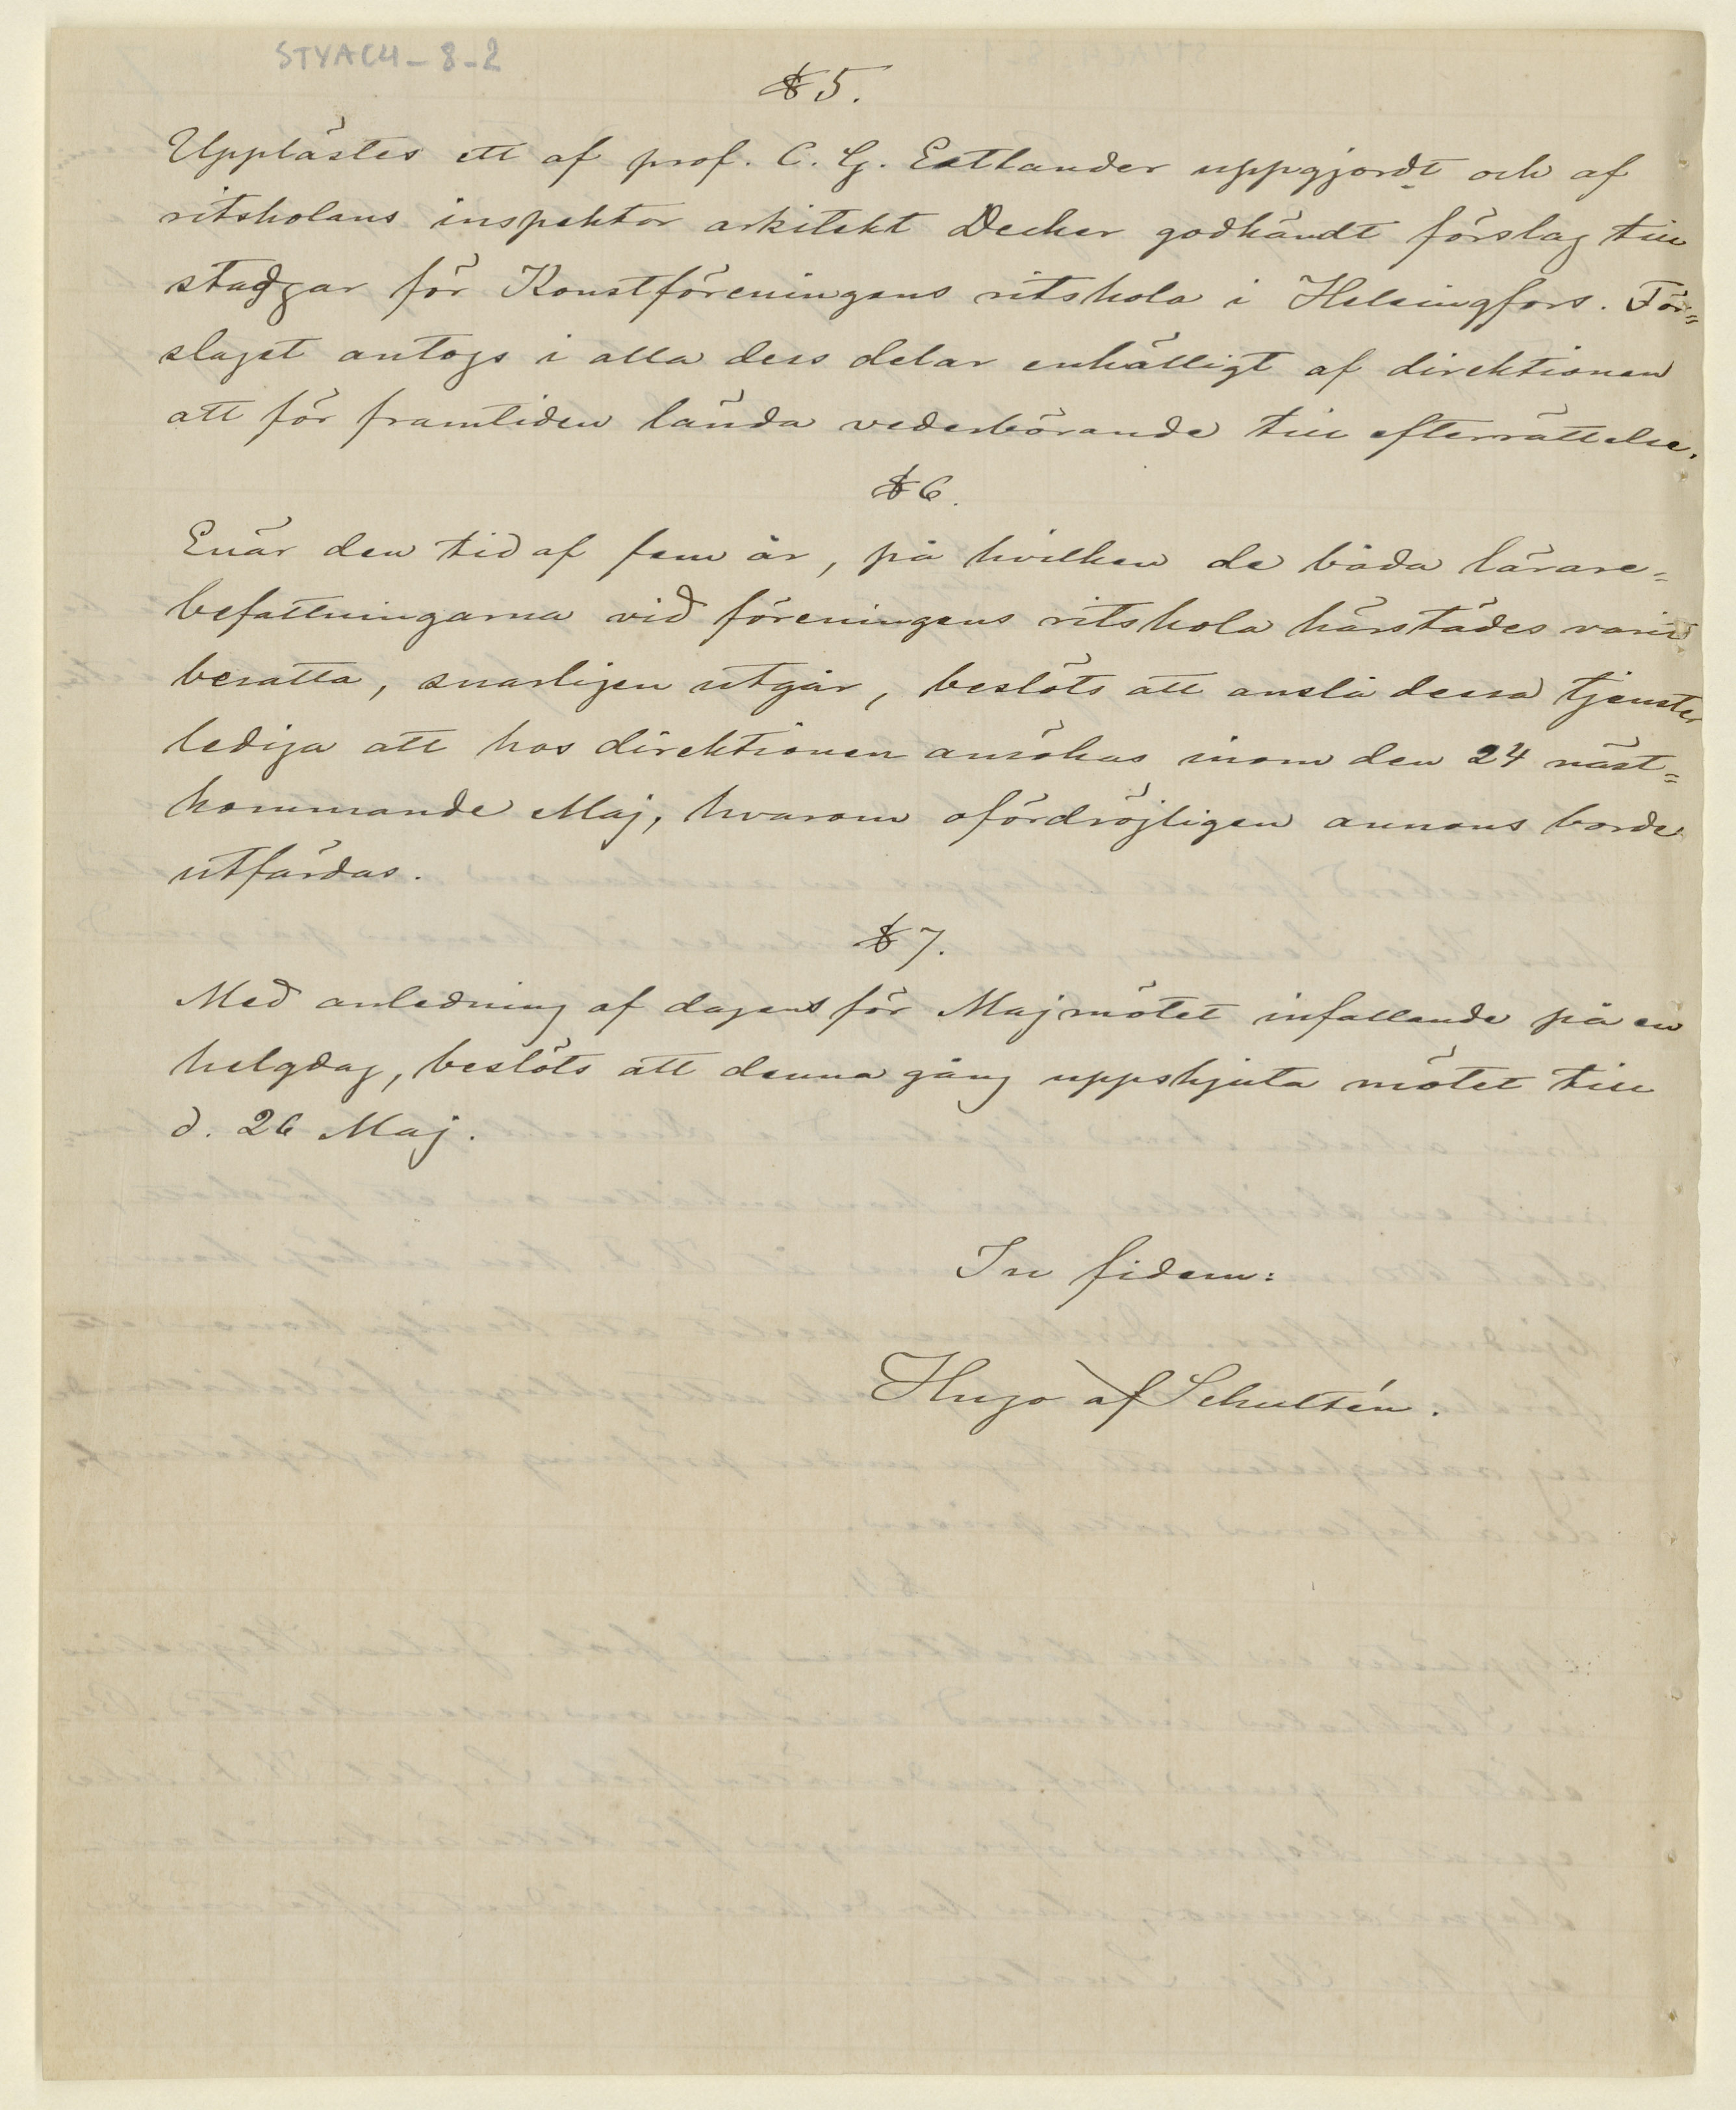 STYAC4-8-2
§ 5.
Upplästes ett af prof. C. G. Estlander uppgjordt och af
ritskolans inspektor arkitekt Decker godkändt förslag till
stadgar för Konstföreningens ritskola i Helsingfors. För=
slaget antogs i alla dess delar enhälligt af direktionen
att för framtiden lända vederbörande till efterrättelse.
§ 6.
Enär den tid af fem år, på hvilken de båda lärare=
befattningarna vid föreningens ritskola härstädes varit
besatta, snarligen utgår, beslöts att anslå dessa tjenster
lediga att hos direktionen ansökas inom den 24 näst=
kommande Maj, hvarom ofördröjligen annons borde
utfärdas.
§ 7.
Med anledning af dagens för Majmötet infallande på en
helgdag, beslöts att denna gång uppskjuta mötet till
d. 26 Maj.
In fidem:
Hugo af Schultén.